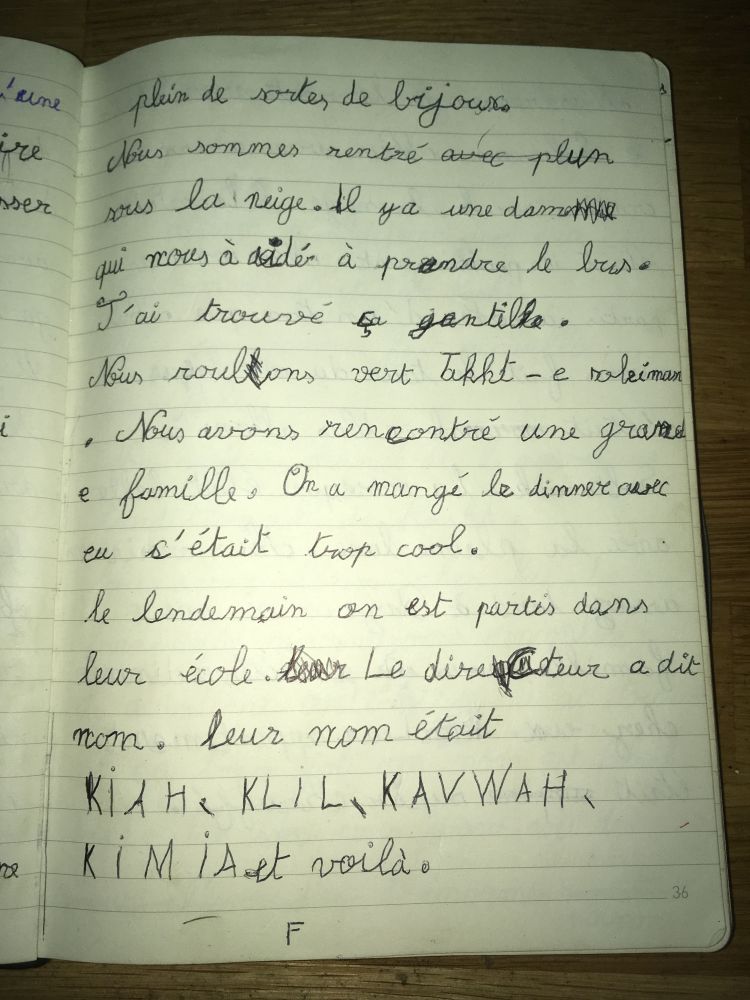 'une
ire
sser
i
ne
plein de sortes de bijoux.
Nous sommes rentré avec plun
sous la neige. Il y a une dame
qui nous à aidé à prendre le bus.
J'ai trouvé ça gentille.
Nous roulons vert Takht-e soleiman
. Nous avons rencontré une grand
e famille. On a mangé le dinner avec
eu s'était trop cool.
le lendemain on est partis dans
leur école. Le directeur a dit
nom. leur nom était
KIAH, KLIL, KAVWAH,
KIMIA et voilà.
36
F